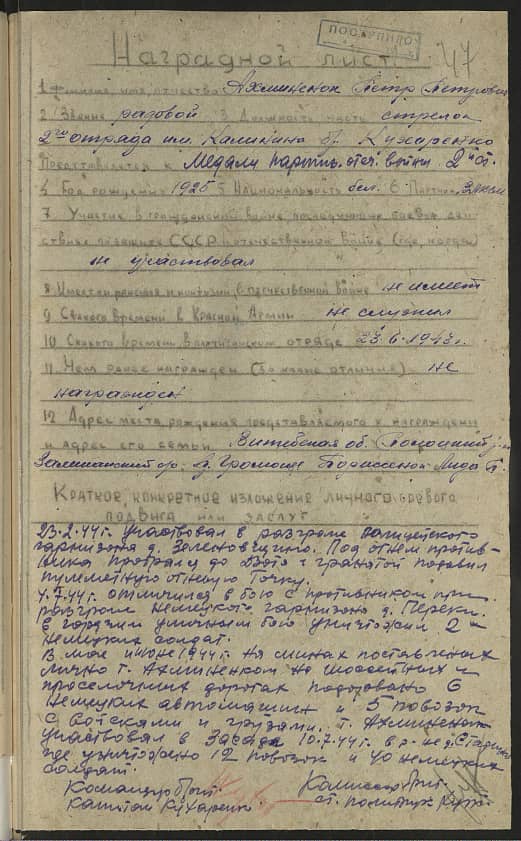 ПОСТУПИЛО
47
Наградной лист
1 Фамилия, имя, отчество Ахлиненок Петр Петрович
2 Звание рядовой 3 Должность, часть стрелок
2го отряда им. Калинина бр. Кухаренко
Представляется к Медали партиз. отеч. войны 2й ст.
4 Год рождения 1925 5 Национальность бел. 6 Партийн.
7 Участие в гражданской войне, последующих боевых дей-
ствиях по защите СССР и отечественной войне (где, когда)
не участвовал
8 Имеет ли ранения и контузии в отечественной войне не имеет
9 С какого времени в Красной Армии не служил
10 С какого времени в партизанском отряде 23.6.1943г.
11 Чем ранее награжден (за какие отличия) не
награжден
12 Адрес места рождения представляемого к награждению
и адрес его семьи Витебская об. Полоцкий
д. Громоще Лида
Краткое конкретное изложение личного боевого
подвига или заслуг
23.2.44г. участвовал в разгроме полицейского
гарнизона д. Зеленовщино. Под огнем против-
ника прополз до и гранатой подавил
пулеметную огневую точку.
44г. отличился в бою с противником при
разгроме немецкого гарнизона д.
В горячем уличном бою уничтожил 2-х
немецких солдат.
В мае июне 1944г. на минах поставленых
лично т. Ахлиненком на шоссейных и
проселочных дорогах подорвано 6
немецких автомашин и 5 повозок
с войсками и грузами. т. Ахлиненок
участвовал в засаде 10.7.44г. в р-не д.
где уничтожено 12 повозок и 40 немецких
солдат.
Командир бриг. Комиссар бриг.
капитан Кухаренко ст. политрук